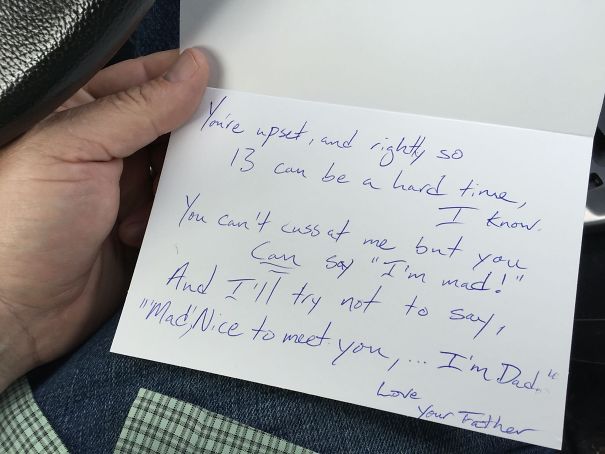 You're upset, and rightly so
13 can be a hard time,
I know.
You can't cuss at me but you
Can say "I'm mad!"
And I'll try not to say,
"'Mad', Nice to meet you, ... I'm Dad."
Love
Your Father